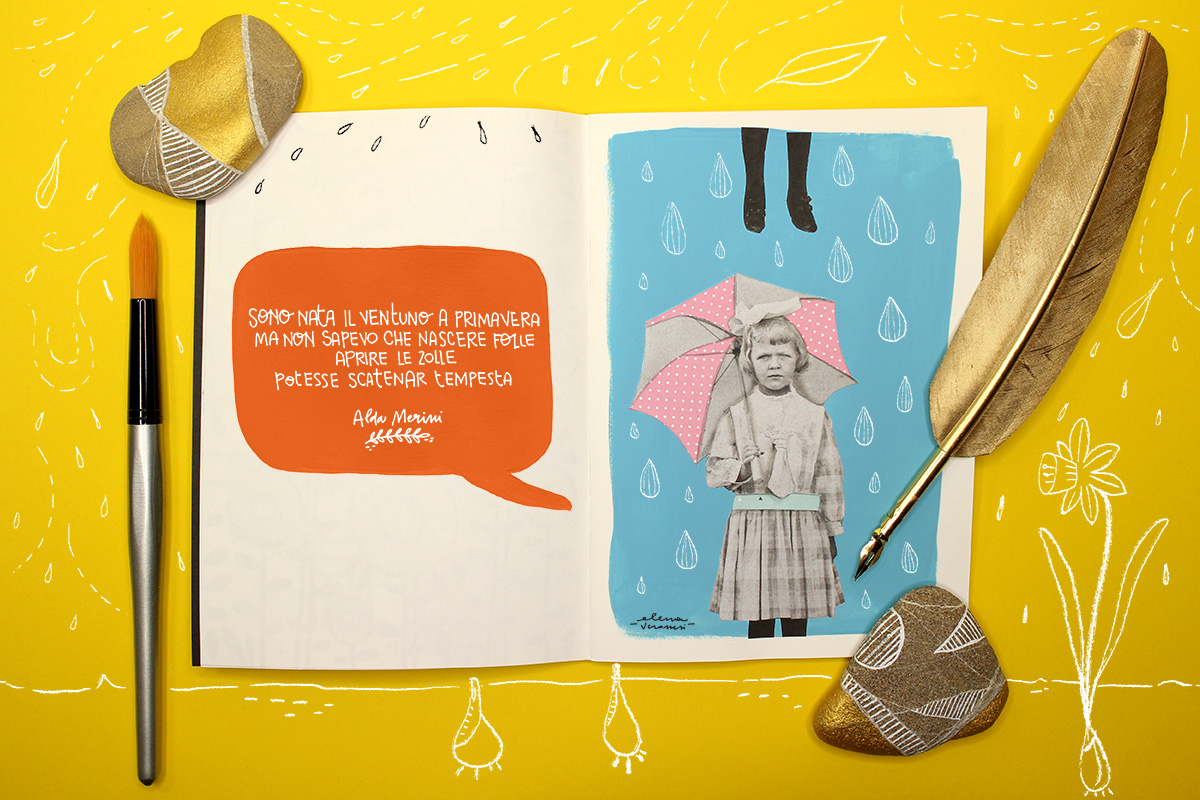 SONO NATA IL VENTUNO A PRIMAVERA
MA NON SAPEVO CHE NASCERE FOLLE
APRIRE LE ZOLLE
POTESSE SCATENAR TEMPESTA
Alda Merini
elena
veronesi